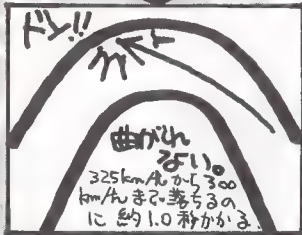 ドン!!
曲がれ
ない。
325km/hから300
km/hまで落ちるの
に約1.0秒かかる